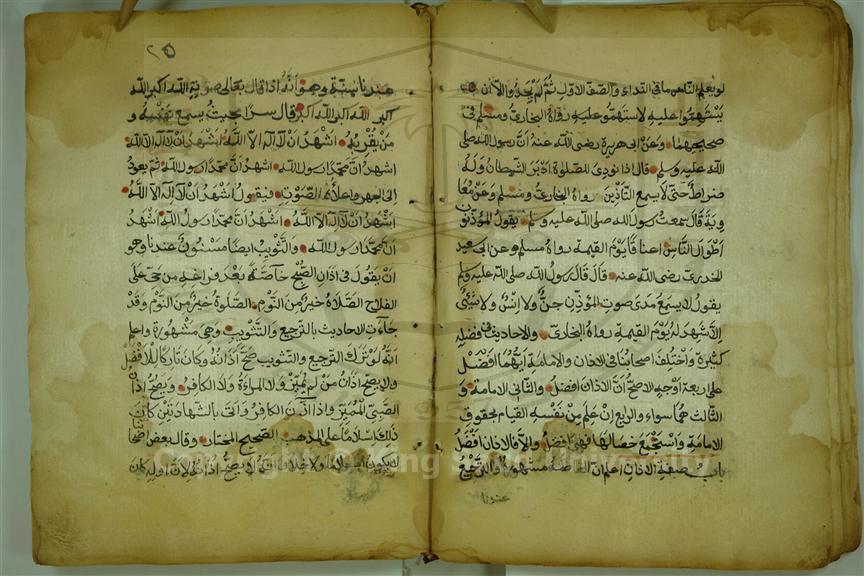 لو يعلم الناس ما في النداء والصف الاول ثم لم يجدوا الا ان
يستهموا عليه لاستهموا عليه رواه البخاري ومسلم في
صحيحيهما وعن ابي هريرة رضي الله عنه ان رسول الله صلى
الله عليه وسلم قال اذا نودي للصلوة ادبر الشيطان وله
ضراط حتى لا يسمع التأذين رواه البخاري ومسلم وعن معا
وية قال سمعت رسول الله صلى الله عليه وسلم يقول المؤذنون
اطوال الناس اعناقا يوم القيمة رواه مسلم وعن ابي سعيد
الخدري رضي الله عنه قال قال رسول الله صلى الله عليه وسلم
يقول لا يسمع مدى صوت المؤذن جن ولا انس ولا شئ
الا شهد له يوم القيمة رواه البخاري والاحاديث في فضله
كثيرة واختلف اصحابنا في الاذان والامامة ايهما افضل
على اربعة اوجه الاصح ان الاذان افضل والثاني الامامة و
الثالث هما سواء والرابع ان علم من نفسه القيام بحقوق
الامامة واستجمع خصالها فهي افضل والا فالاذان افضل
باب صفة الاذان اعلم ان الفاظه مشهورة والترجيع
عندنا
٢٥
عندنا سنة وهو انه اذا قال بعالي صوته الله اكبر الله
اكبر الله اكبر الله اكبر قال سرا بحيث يسمع نفسه و
من بقربه اشهد ان لا اله الا الله اشهد ان لا اله الا الله
اشهد ان محمدا رسول الله اشهد ان محمدا رسول الله ثم يعود
الى الجهر واعلاء الصوت فيقول اشهد ان لا اله الا الله
اشهد ان لا اله الا الله اشهد ان محمدا رسول الله اشهد
ان محمدا رسول الله والتثويب ايضا مسنون عندنا وهو
ان يقول في اذان الصبح خاصة بعد فراغه من حي على
الفلاح الصلاة خير من النوم الصلوة خير من النوم وقد
جاءت الاحاديث بالترجيع والتثويب وهي مشهورة واعلم
انه لو ترك الترجيع والتثويب صح اذانه وكان تاركا للافضل
ولا يصح اذان من لم يميز ولا المراة ولا الكافر ويصح اذان
الصبي المميز واذا اذن الكافر واتى بالشهادتين كان
ذلك اسلاما على المذهب الصحيح المختار وقال بعض اصحا
لا يكون اسلاما ولا خلاف انه لا يصح اذانه لان اوله كان
Copyright © King Saud University